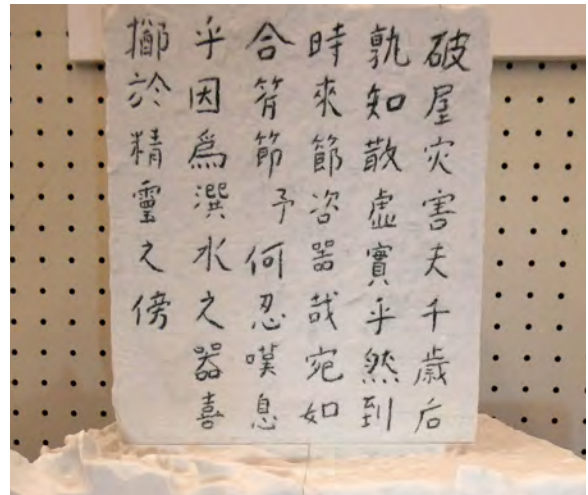 破屋灾害夫千歳后
孰知散虚實乎然到
時來節咨器哉宛如
合符節予何忍嘆息
乎因爲潠水之器喜
擲於精霊之傍